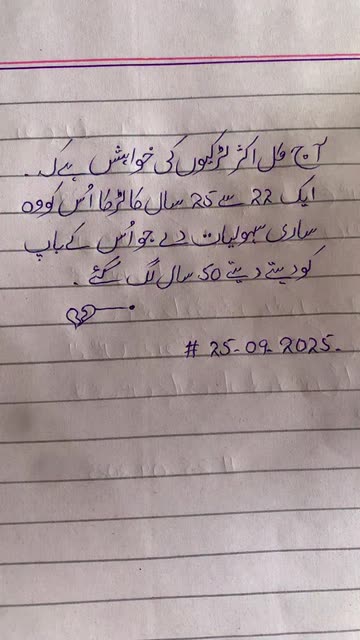 آج کل اکثر لڑکیوں کی خواہش ہے کہ.
ایک 22 سے 25 سال کا لڑکا اُس کو وہ
ساری سہولیات دے جو اُس کے باپ
کو دیتے دیتے 50 سال لگ گئے.
# 25-09-2025.